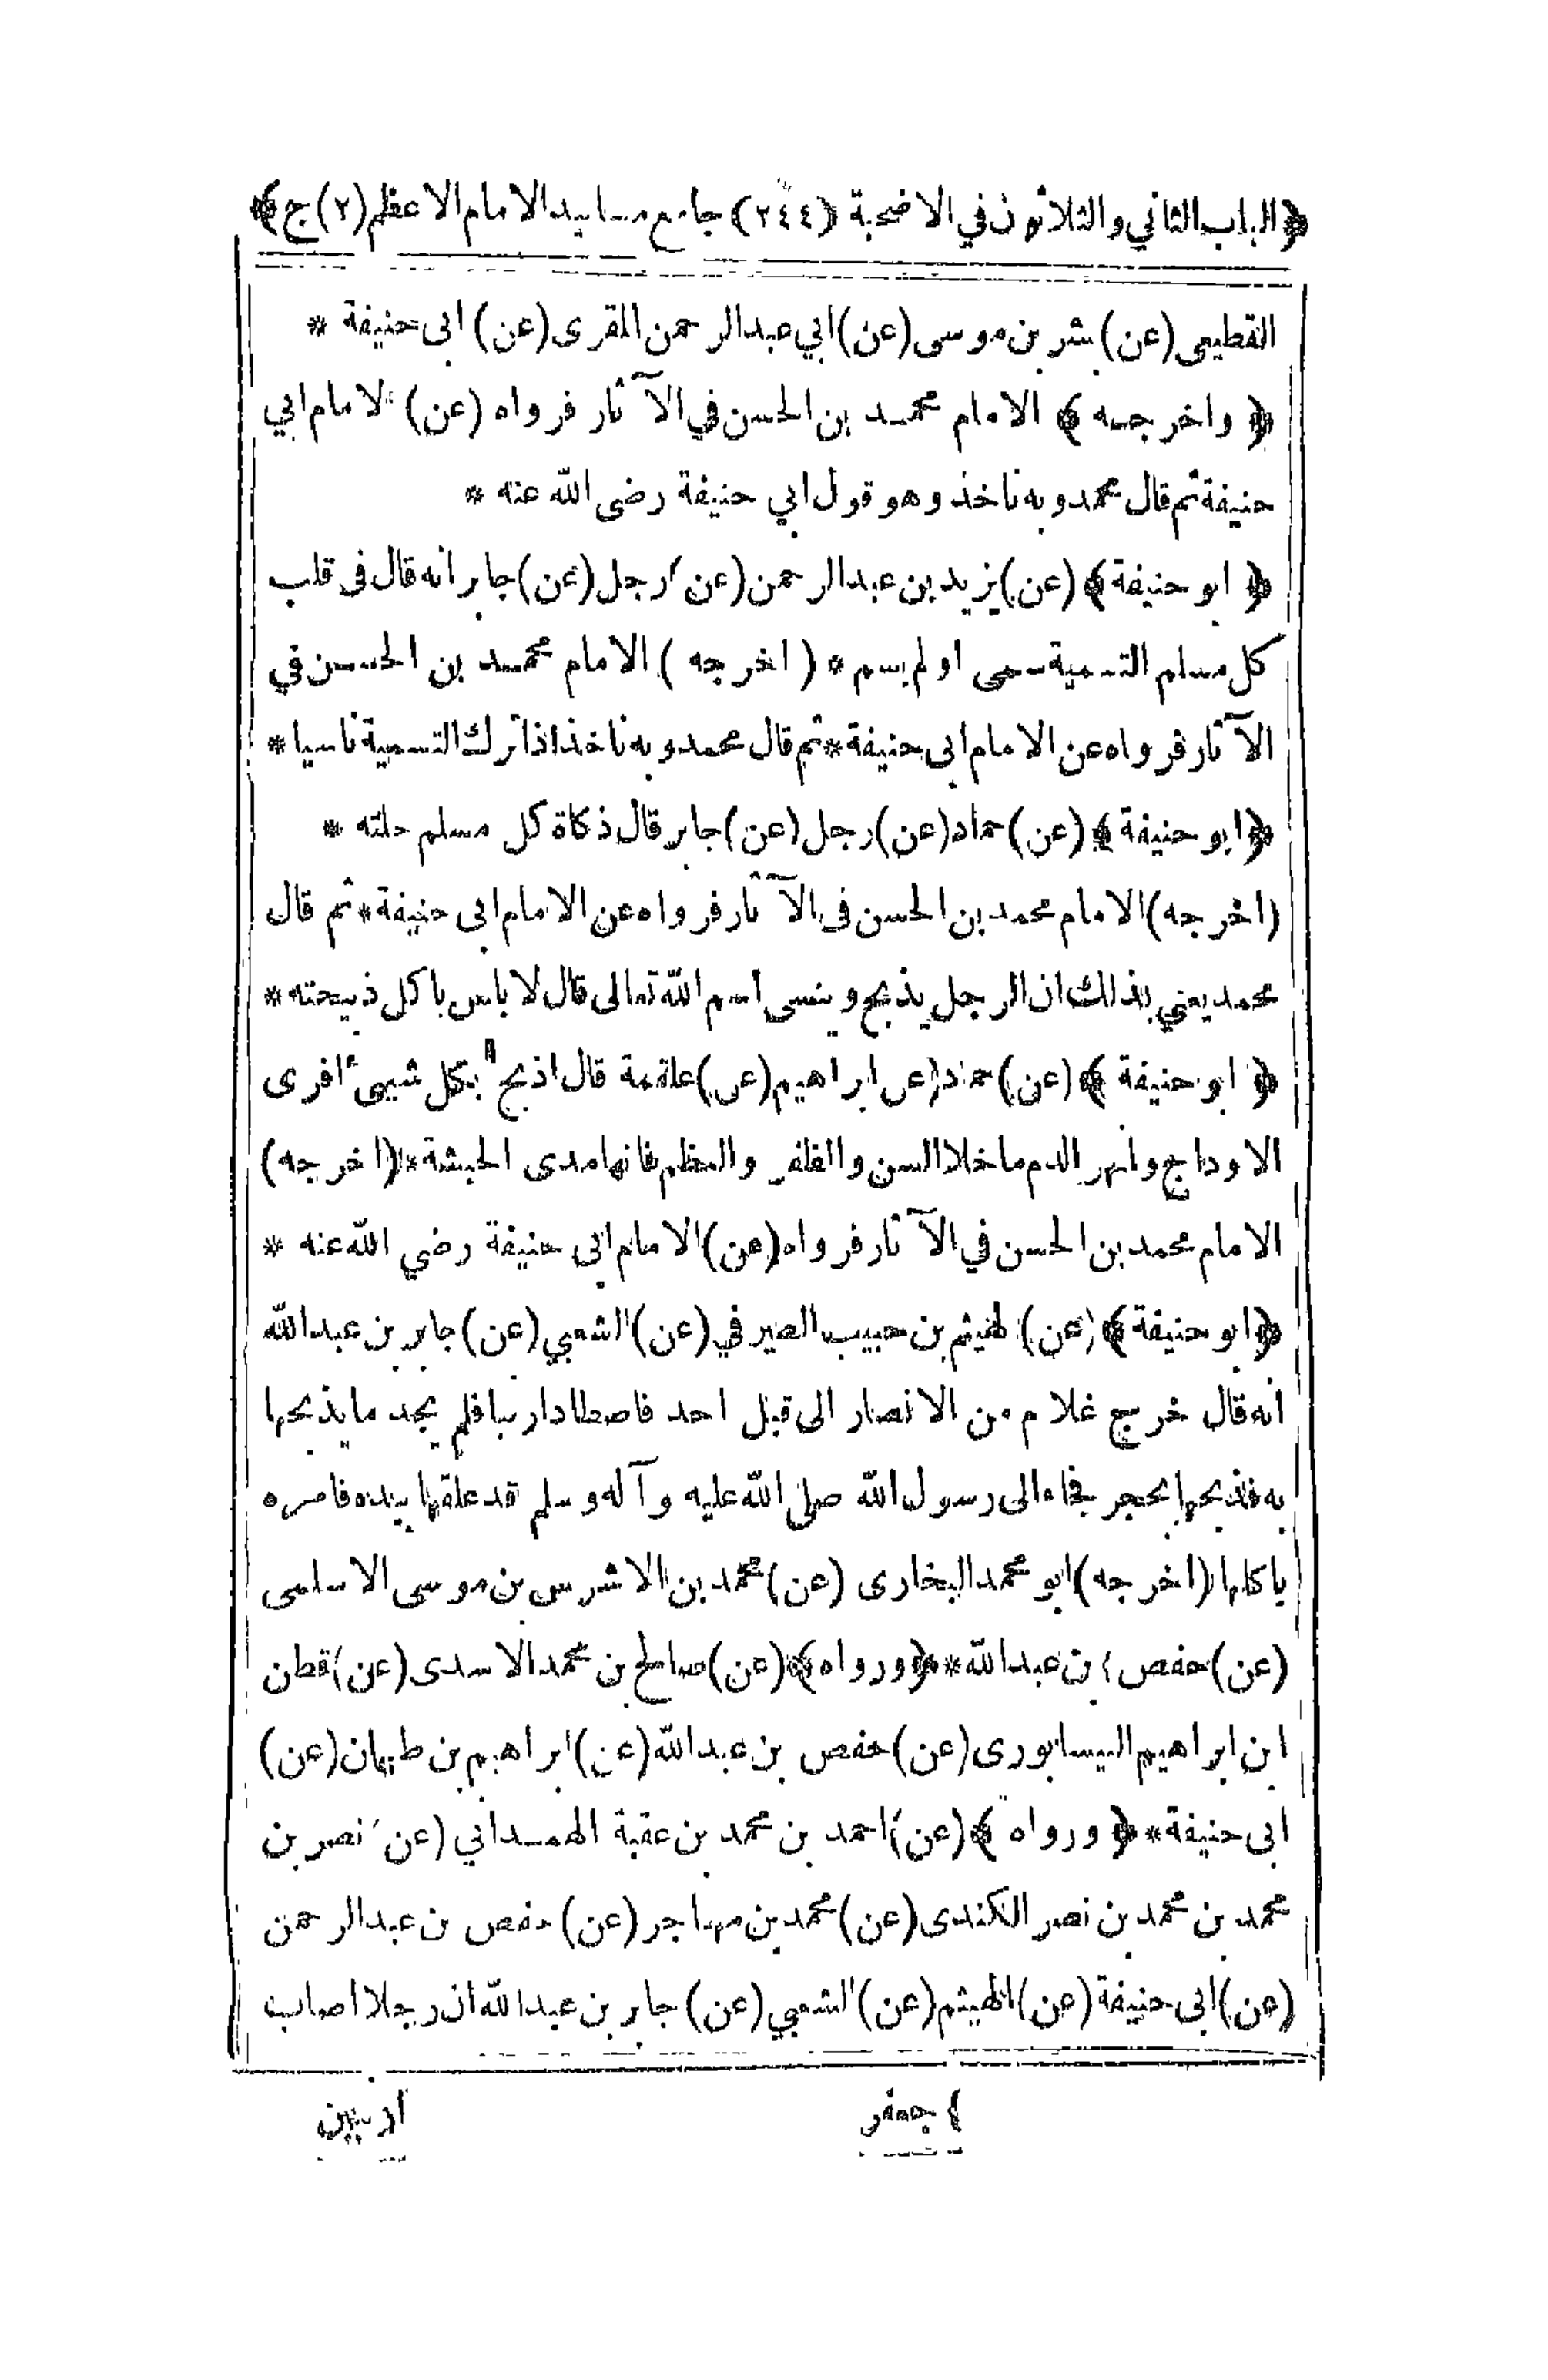 ﴿الباب الثاني والثلاثون في الاضحية (٢٤٤) جامع مسانيد الامام الاعظم (٢) ج﴾
القطيعى (عن) بشر بن موسى (عن) ابي عبد الرحمن المقرى (عن) ابى حنيفة *
﴿ واخرجه ﴾ الامام محمد بن الحسن في الآثار فرواه (عن) الامام ابي
حنيفة ثم قال محمد وبه ناخذ وهو قول ابي حنيفة رضى الله عنه *
﴿ ابو حنيفة ﴾ (عن) يزيد بن عبد الرحمن (عن) رجل (عن) جابر انه قال فى قلب
كل مسلم التسمية سمى او لم يسم * ( اخرجه ) الامام محمد بن الحسن في
الآثار فرواه عن الامام ابى حنيفة * ثم قال محمد وبه ناخذ اذا ترك التسمية ناسيا *
﴿ ابو حنيفة ﴾ (عن) حماد (عن) رجل (عن) جابر قال ذكاة كل مسلم حلته *
(اخرجه) الامام محمد بن الحسن فى الآثار فرواه عن الامام ابى حنيفة * ثم قال
محمد يعني بذلك ان الرجل يذبح وينسى اسم الله تعالى قال لا باس باكل ذبيحته *
﴿ ابو حنيفة ﴾ (عن) حماد (عن) ابراهيم (عن) علقمة قال اذبح بكل شيئ افرى
الاوداج وانهر الدم ما خلا السن والظفر والعظم فانها مدى الحبشة * (اخرجه)
الامام محمد بن الحسن في الآثار فرواه (عن) الامام ابى حنيفة رضي الله عنه *
﴿ ابو حنيفة ﴾ (عن) الهيثم بن حبيب الصيرفي (عن) الشعبي (عن) جابر بن عبد الله
انه قال خرج غلام من الانصار الى قبل احد فاصطاد ارنبا فلم يجد ما يذبحها
به فذبحها بحجر فجاء الى رسول الله صلى الله عليه وآله وسلم قد علقها بيده فامره
باكلها (اخرجه) ابو محمد البخارى (عن) محمد بن الاشرس بن موسى الاسلمى
(عن) حفص بن عبد الله * ﴿ ورواه ﴾ (عن) صالح بن محمد الاسدى (عن) قطن
ابن ابراهيم النيسابورى (عن) حفص بن عبد الله (عن) ابراهيم بن طهمان (عن)
ابى حنيفة * ﴿ ورواه ﴾ (عن) احمد بن محمد بن عقبة الهمداني (عن) نصر بن
محمد بن محمد بن نصر الكندى (عن) محمد بن مهاجر (عن) حفص بن عبد الرحمن
(عن) ابى حنيفة (عن) الهيثم (عن) الشعبي (عن) جابر بن عبد الله ان رجلا اصاب
جعفر
ارنبين